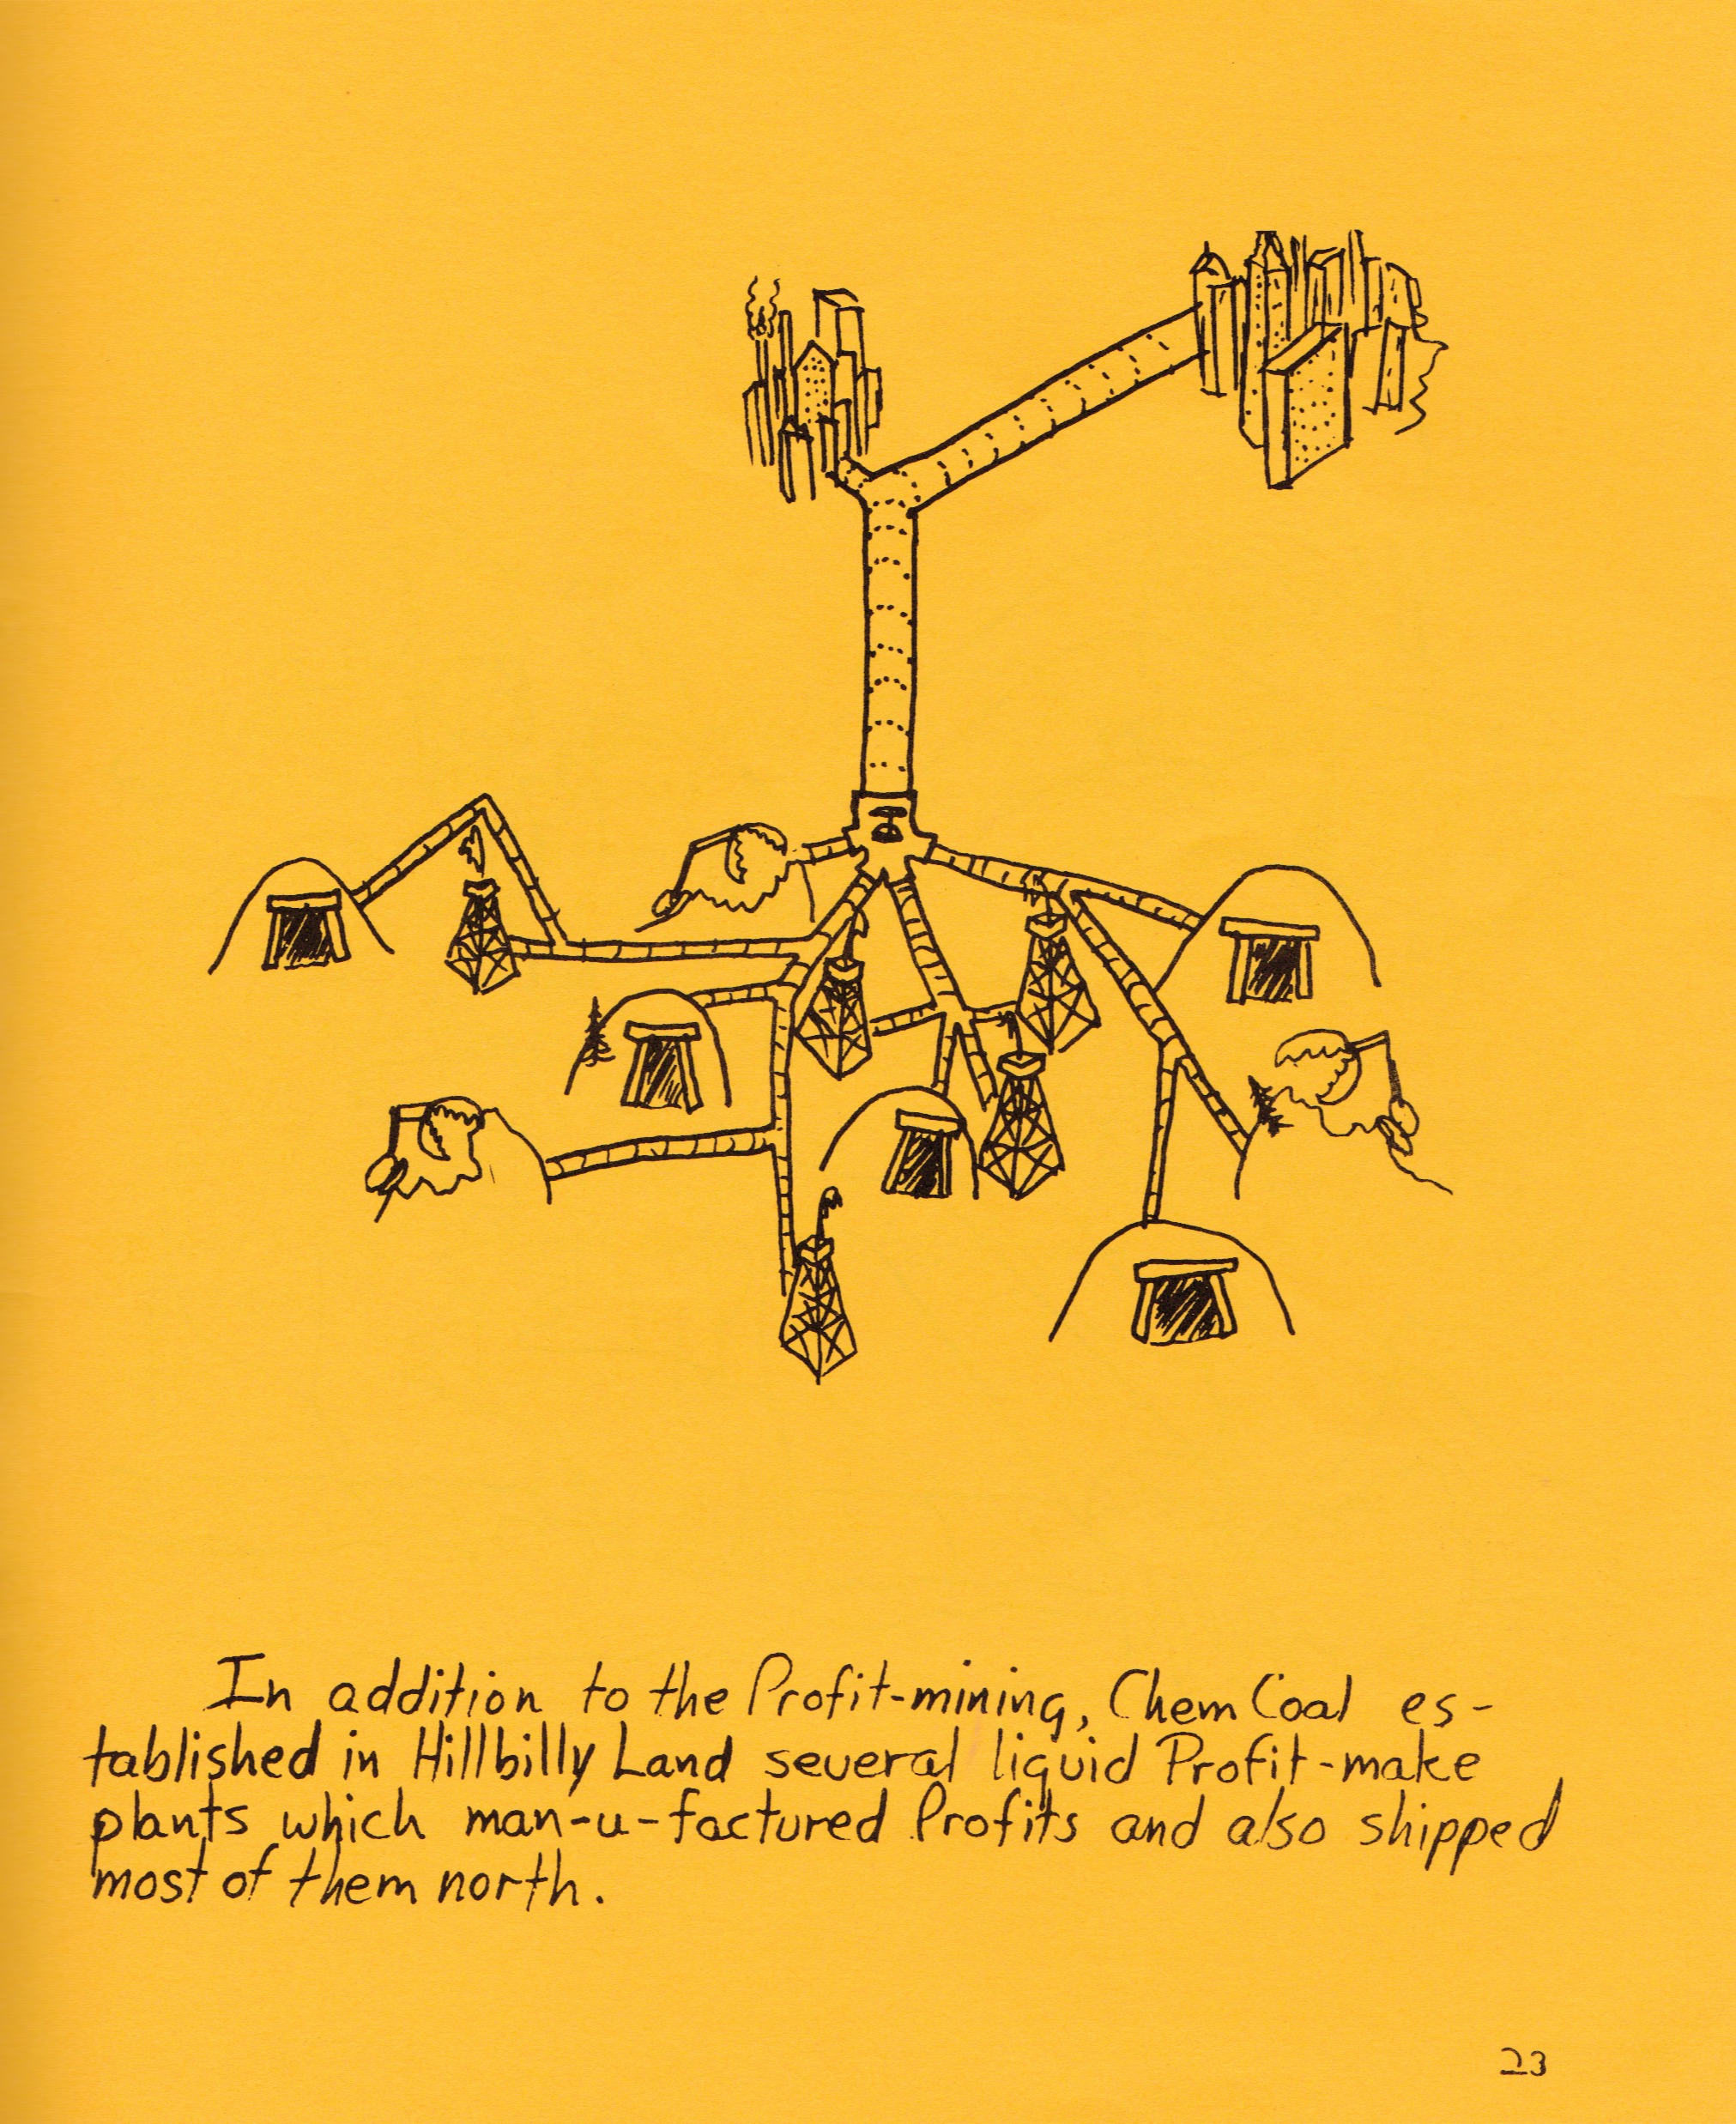 In addition to the Profit-mining, ChemCoal es-
tablished in Hillbilly Land several liquid Profit-make
plants which man-u-factured Profits and also shipped
most of them north.
23